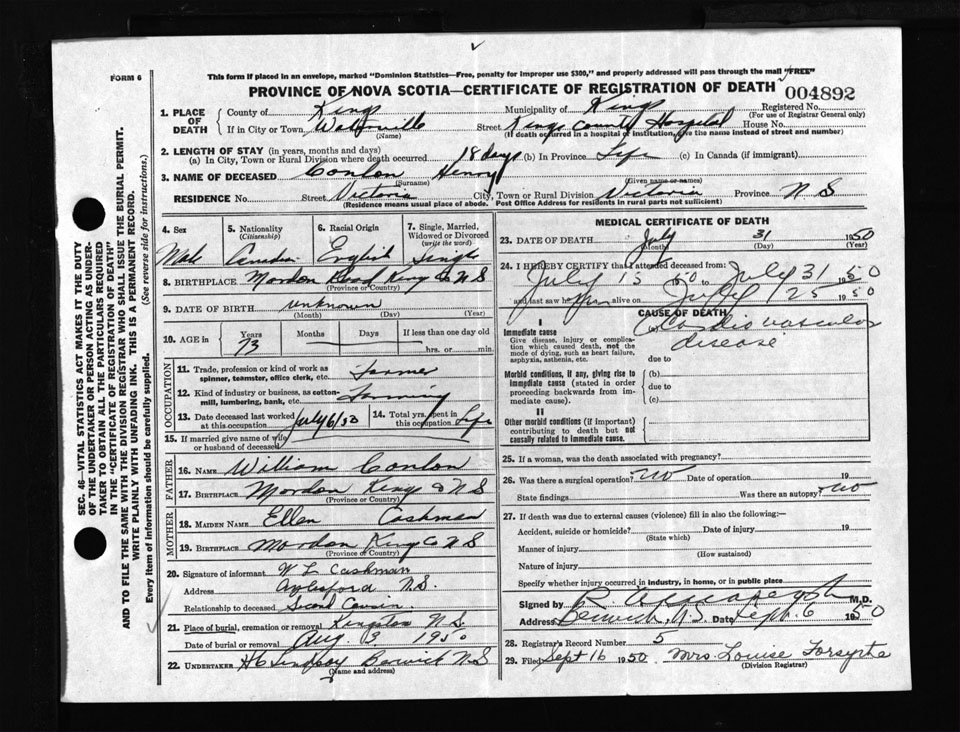 FORM 6
This form if placed in an envelope, marked "Dominion Statistics—Free, penalty for improper use $300," and properly addressed will pass through the mail "FREE"
PROVINCE OF NOVA SCOTIA—CERTIFICATE OF REGISTRATION OF DEATH 004892
SEC. 46—VITAL STATISTICS ACT MAKES IT THE DUTY
OF THE UNDERTAKER OR PERSON ACTING AS UNDER-
TAKER TO OBTAIN ALL THE PARTICULARS REQUIRED
IN THE "CERTIFICATE OF REGISTRATION OF DEATH"
AND TO FILE THE SAME WITH THE DIVISION REGISTRAR WHO SHALL ISSUE THE BURIAL PERMIT.
WRITE PLAINLY WITH UNFADING INK. THIS IS A PERMANENT RECORD.
Every item of information should be carefully supplied. (See reverse side for instructions.)
1. PLACE OF DEATH County of Kings Municipality of Kings Registered No.
(For use of Registrar General only)
If in City or Town, Wolfville Street Kings County Hospital House No.
(Name) (If death occurred in a hospital or institution, give the name instead of street and number)
2. LENGTH OF STAY (in years, months and days)
(a) In City, Town or Rural Division where death occurred 18 days (b) In Province Life (c) In Canada (if immigrant)
3. NAME OF DECEASED Conlon Henry
(Surname) (Given name or names)
RESIDENCE No. Street Victoria City, Town or Rural Division Victoria Province N S
(Residence means usual place of abode. Post Office Address for residents in rural parts not sufficient)
4. Sex 5. Nationality (Citizenship) 6. Racial Origin 7. Single, Married, Widowed or Divorced (write the word)
Male Canadian English Single
8. BIRTHPLACE Mordon Kings Co N S
(Province or Country)
9. DATE OF BIRTH unknown
(Month) (Day) (Year)
10. AGE in Years Months Days If less than one day old
73 hrs. or min.
OCCUPATION
11. Trade, profession or kind of work as spinner, teamster, office clerk, etc. Farmer
12. Kind of industry or business, as cotton-mill, lumbering, bank, etc. Farming
13. Date deceased last worked at this occupation July 6/50 14. Total yrs. spent in this occupation Life
15. If married give name of wife or husband of deceased
FATHER
16. NAME William Conlon
17. BIRTHPLACE Mordon Kings Co N S
(Province or Country)
MOTHER
18. MAIDEN NAME Ellen Cashman
19. BIRTHPLACE Mordon Kings Co N S
(Province or Country)
20. Signature of informant W L Cashman
Address Aylesford N.S.
Relationship to deceased Second Cousin
21. Place of burial, cremation or removal Kingston N.S.
Date of burial or removal Aug. 3 1950
22. UNDERTAKER H C Lindsay Berwick N S
(Name and address)
MEDICAL CERTIFICATE OF DEATH
23. DATE OF DEATH July 31 1950
(Month) (Day) (Year)
24. I HEREBY CERTIFY that I attended deceased from:
July 13 50 to July 31 1950
and last saw him alive on July 25 1950
CAUSE OF DEATH
I
Immediate cause (a) Cardio vascular
Give disease, injury or complication which caused death, not the mode of dying, such as heart failure, asphyxia, asthenia, etc. disease
due to
Morbid conditions, if any, giving rise to immediate cause (stated in order proceeding backwards from immediate cause). (b)
due to
(c)
II
Other morbid conditions (if important) contributing to death but not causally related to immediate cause.
25. If a woman, was the death associated with pregnancy?
26. Was there a surgical operation? no Date of operation 19
State findings Was there an autopsy? no
27. If death was due to external causes (violence) fill in also the following:—
Accident, suicide or homicide? Date of injury 19
(State which)
Manner of injury
(How sustained)
Nature of injury
Specify whether injury occurred in industry, in home, or in public place
Signed by R. M.D.
Address Berwick, N.S. Date Sept. 6 1950
28. Registrar's Record Number 5
29. Filed Sept 16 1950 Mrs. Louise Forsythe
(Division Registrar)